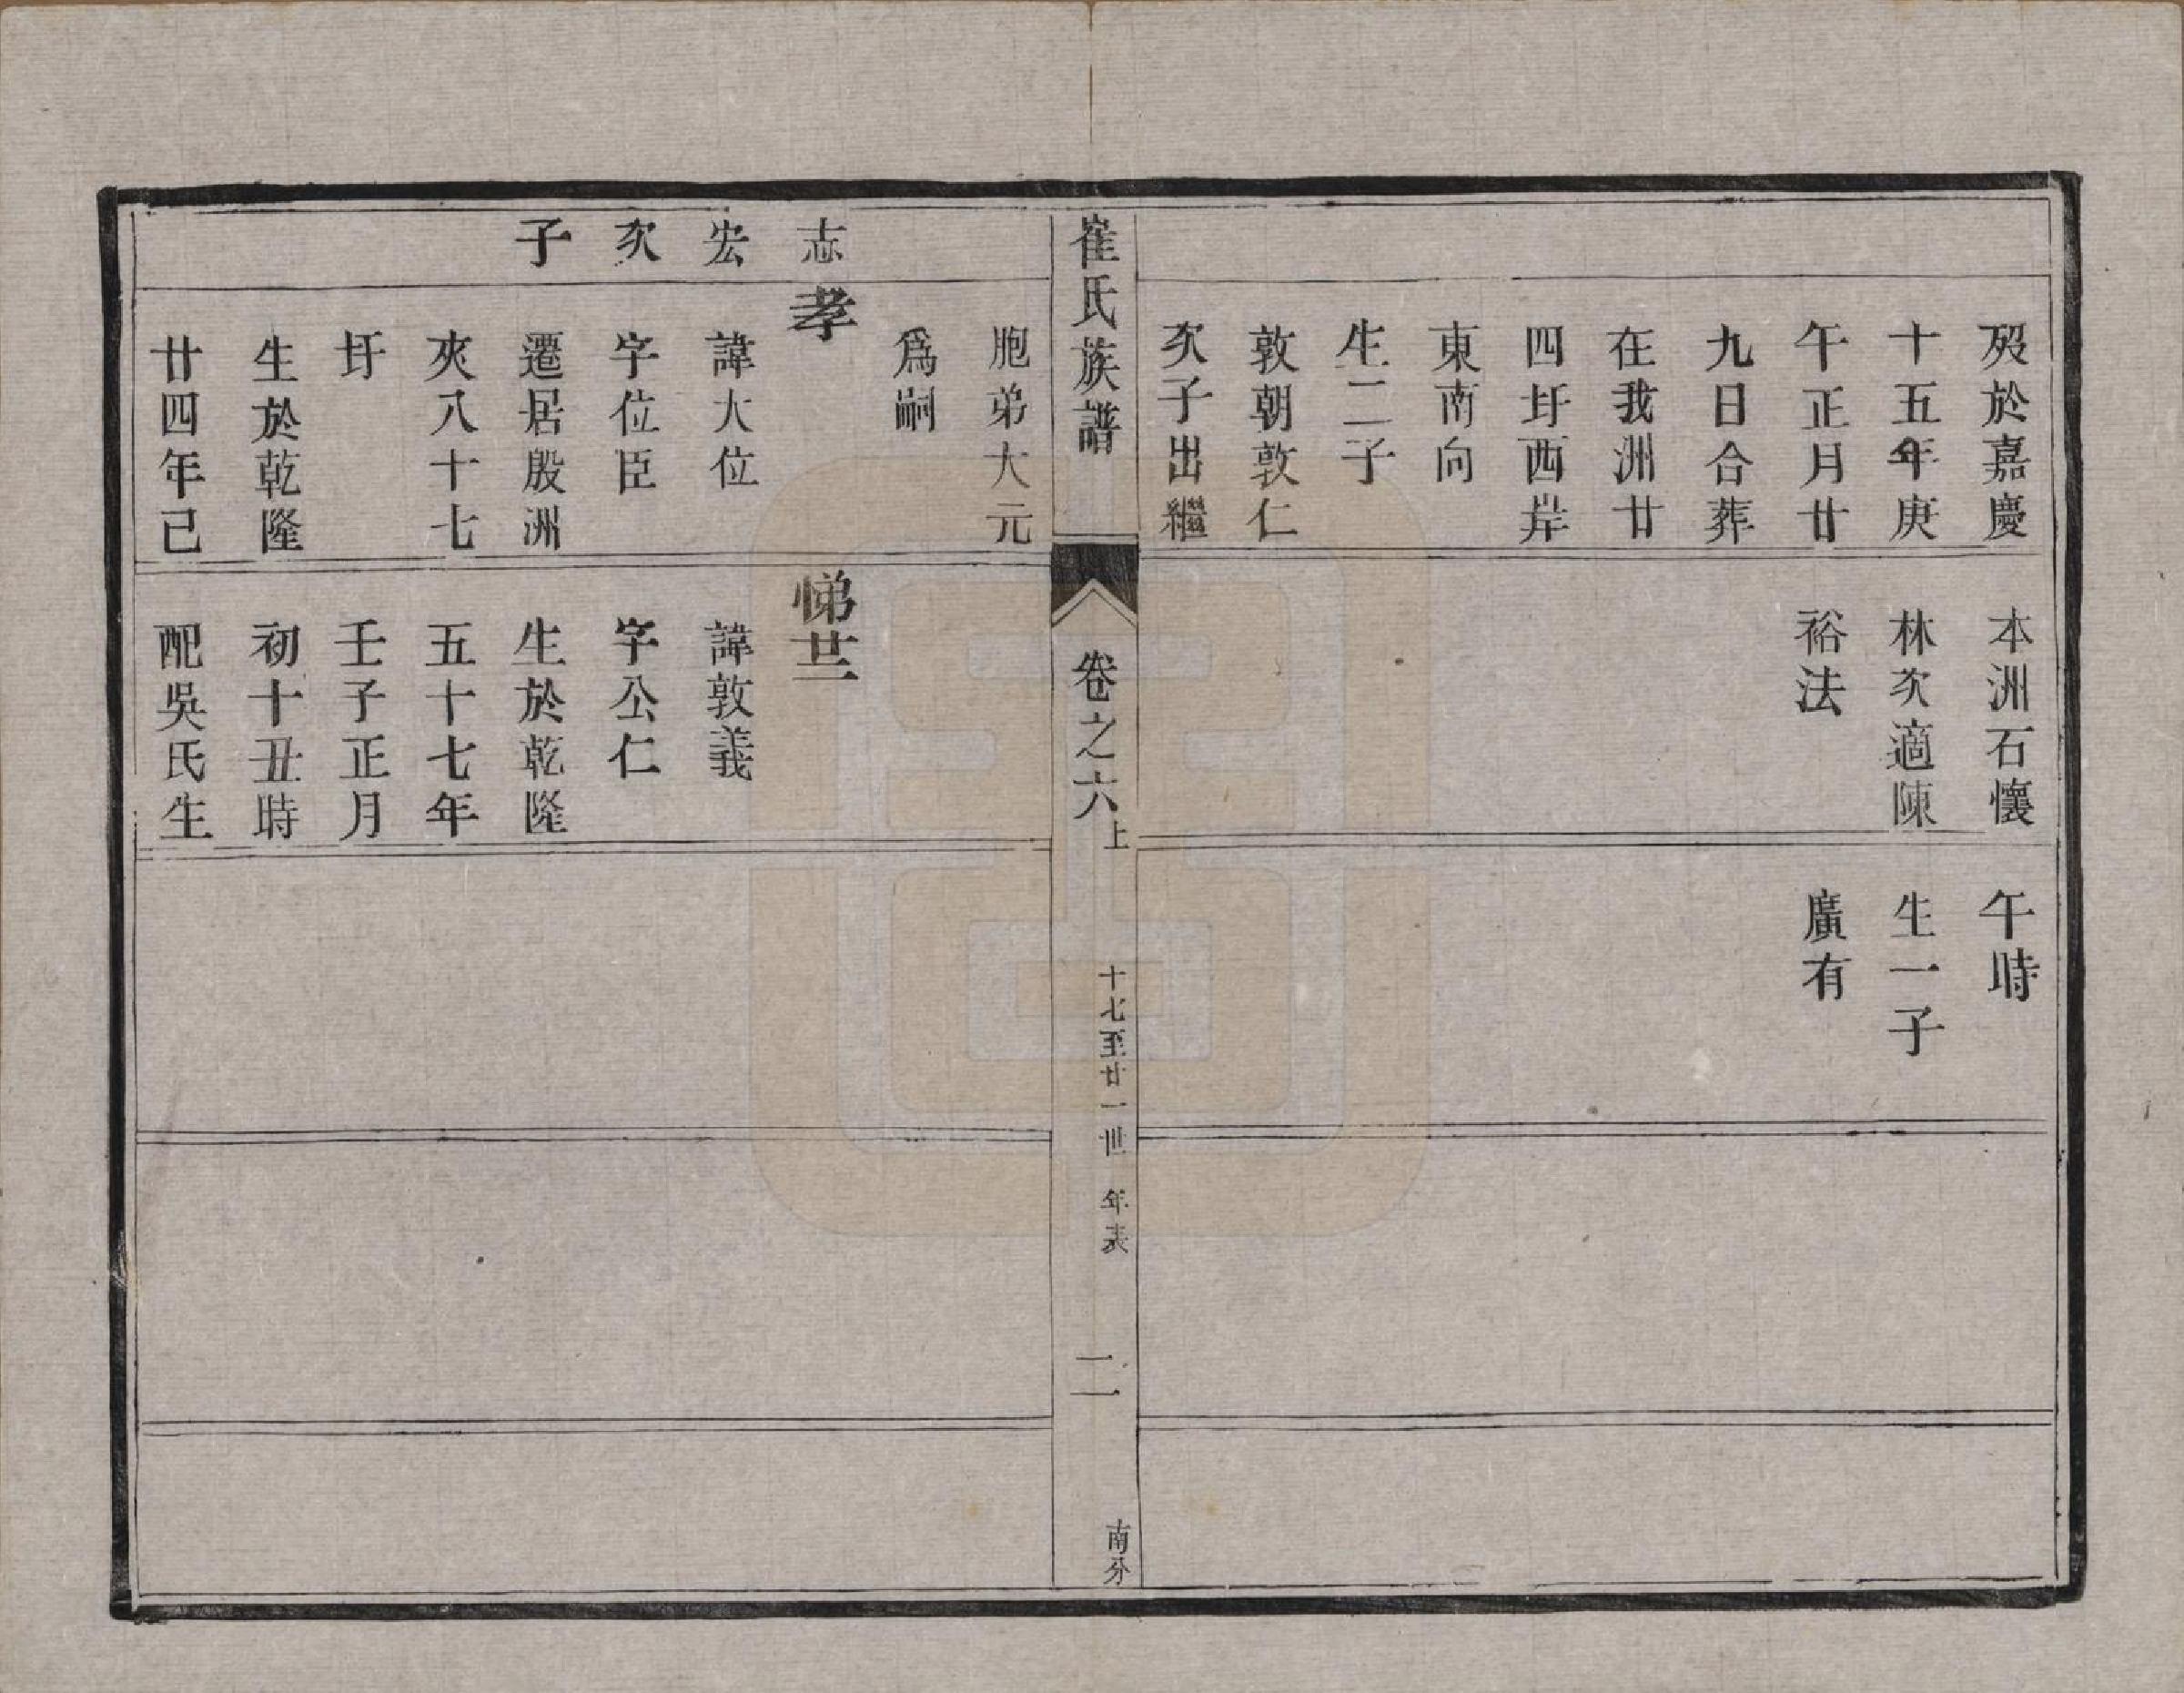 歿於嘉慶
十五年庚
午正月廿
九日合葬
在我洲廿
四圩西岸
東南向
生二子
敦朝敦仁
次子出繼
本洲石懷
林次適陳
裕法
午時
生一子
廣有
崔氏族譜
卷之六上
十七至廿一世 年表
二
南分
胞弟大元
爲嗣
志宏次子
孝
諱大位
字位臣
遷居殷洲
夾八十七
圩
生於乾隆
廿四年己
悌廿二
諱敦義
字公仁
生於乾隆
五十七年
壬子正月
初十丑時
配吳氏生